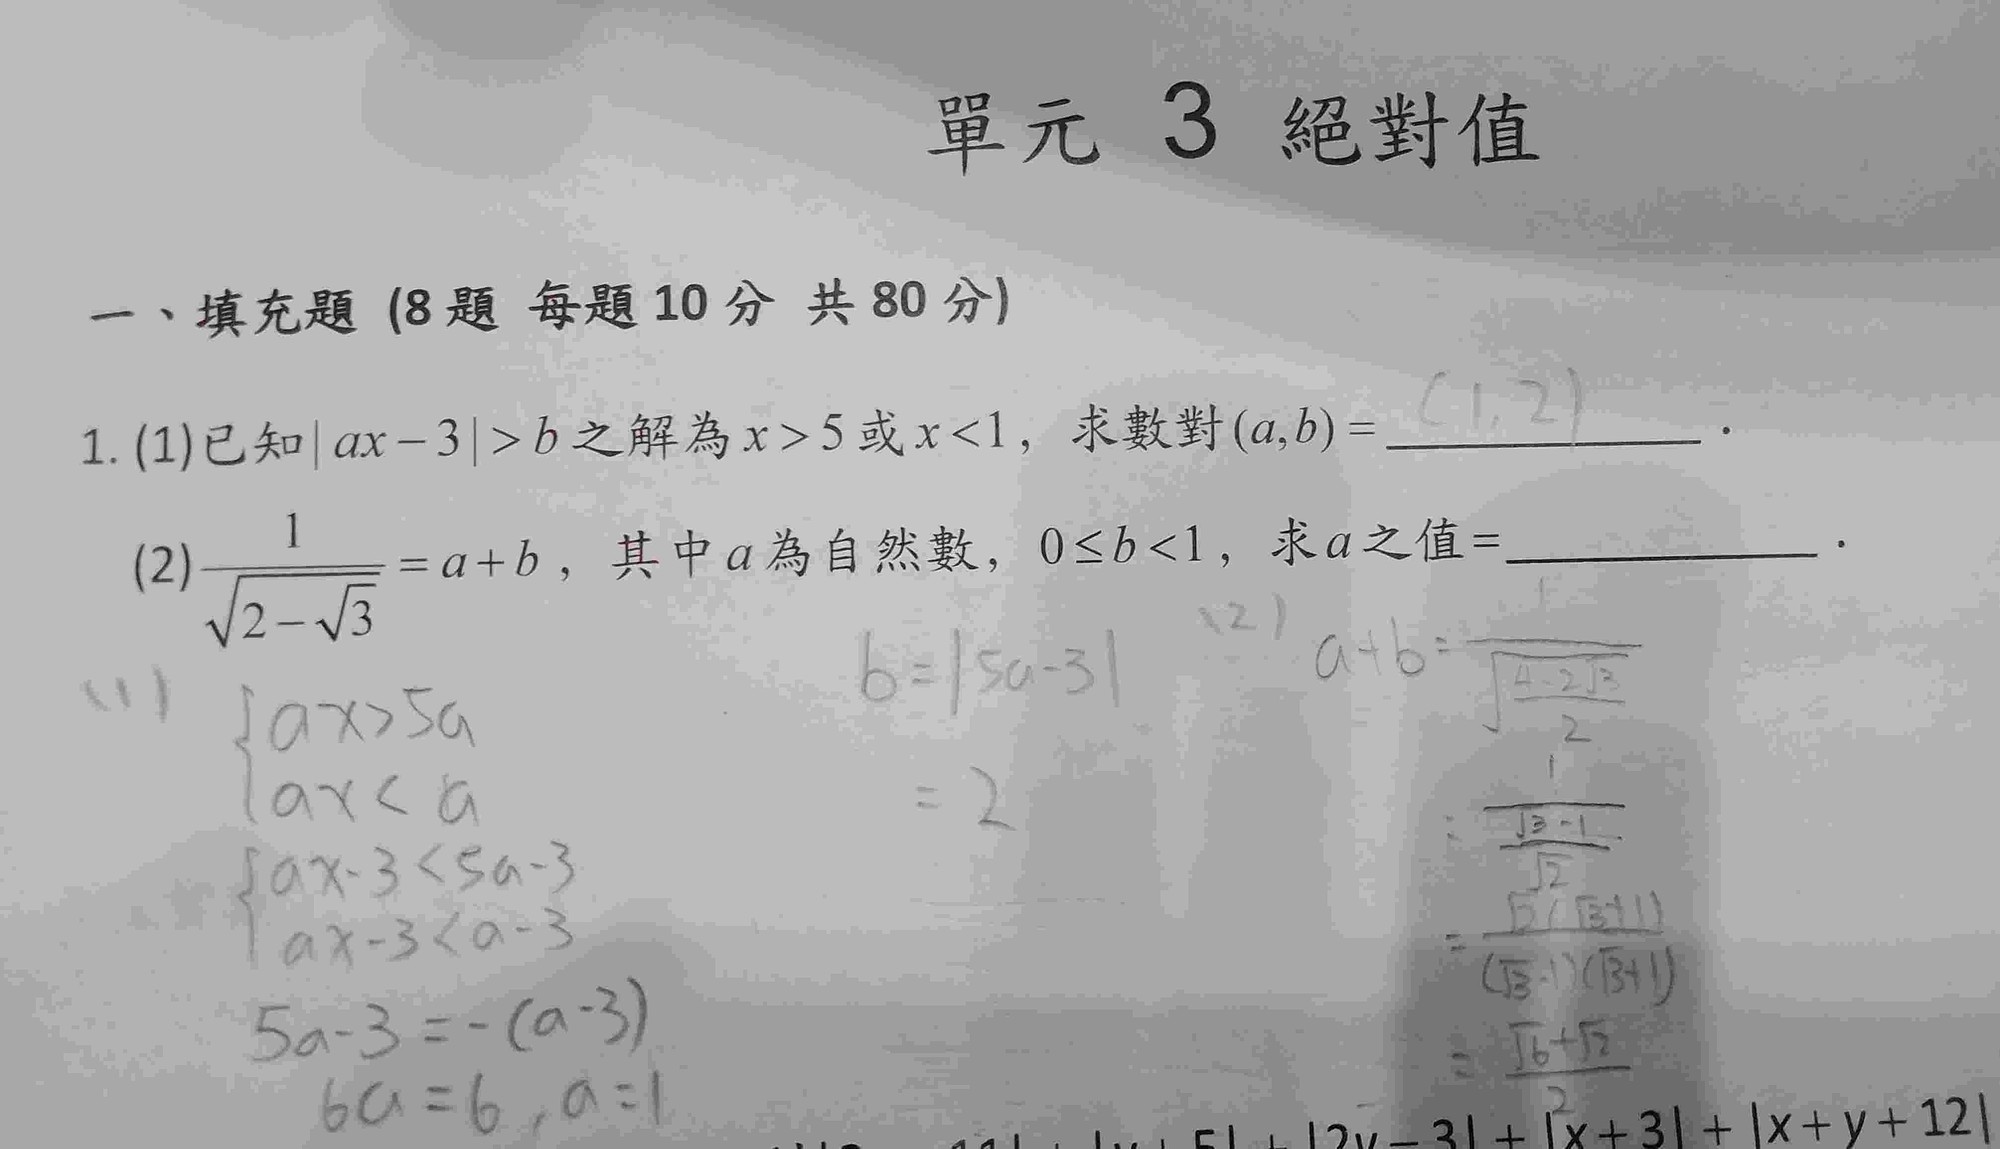 單元 3 絕對值
一、填充題 (8題 每題10分 共80分)
1. (1)已知|ax-3|>b之解為x>5或x<1, 求數對(a,b)= (1,2) .
(2) 1/√(2-√3) = a+b, 其中a為自然數, 0≤b<1, 求a之值=________.
(1)
{ax>5a
ax<a
{ax-3<5a-3
ax-3<a-3
5a-3=-(a-3)
6a=6, a=1
b=|5a-3|
=2
(2) a+b= 1/√((4-2√3)/2)
= 1/((√3-1)/√2)
= √2(√3+1)/((√3-1)(√3+1))
= (√6+√2)/2
|2y-3|+|x+3|+|x+y+12|